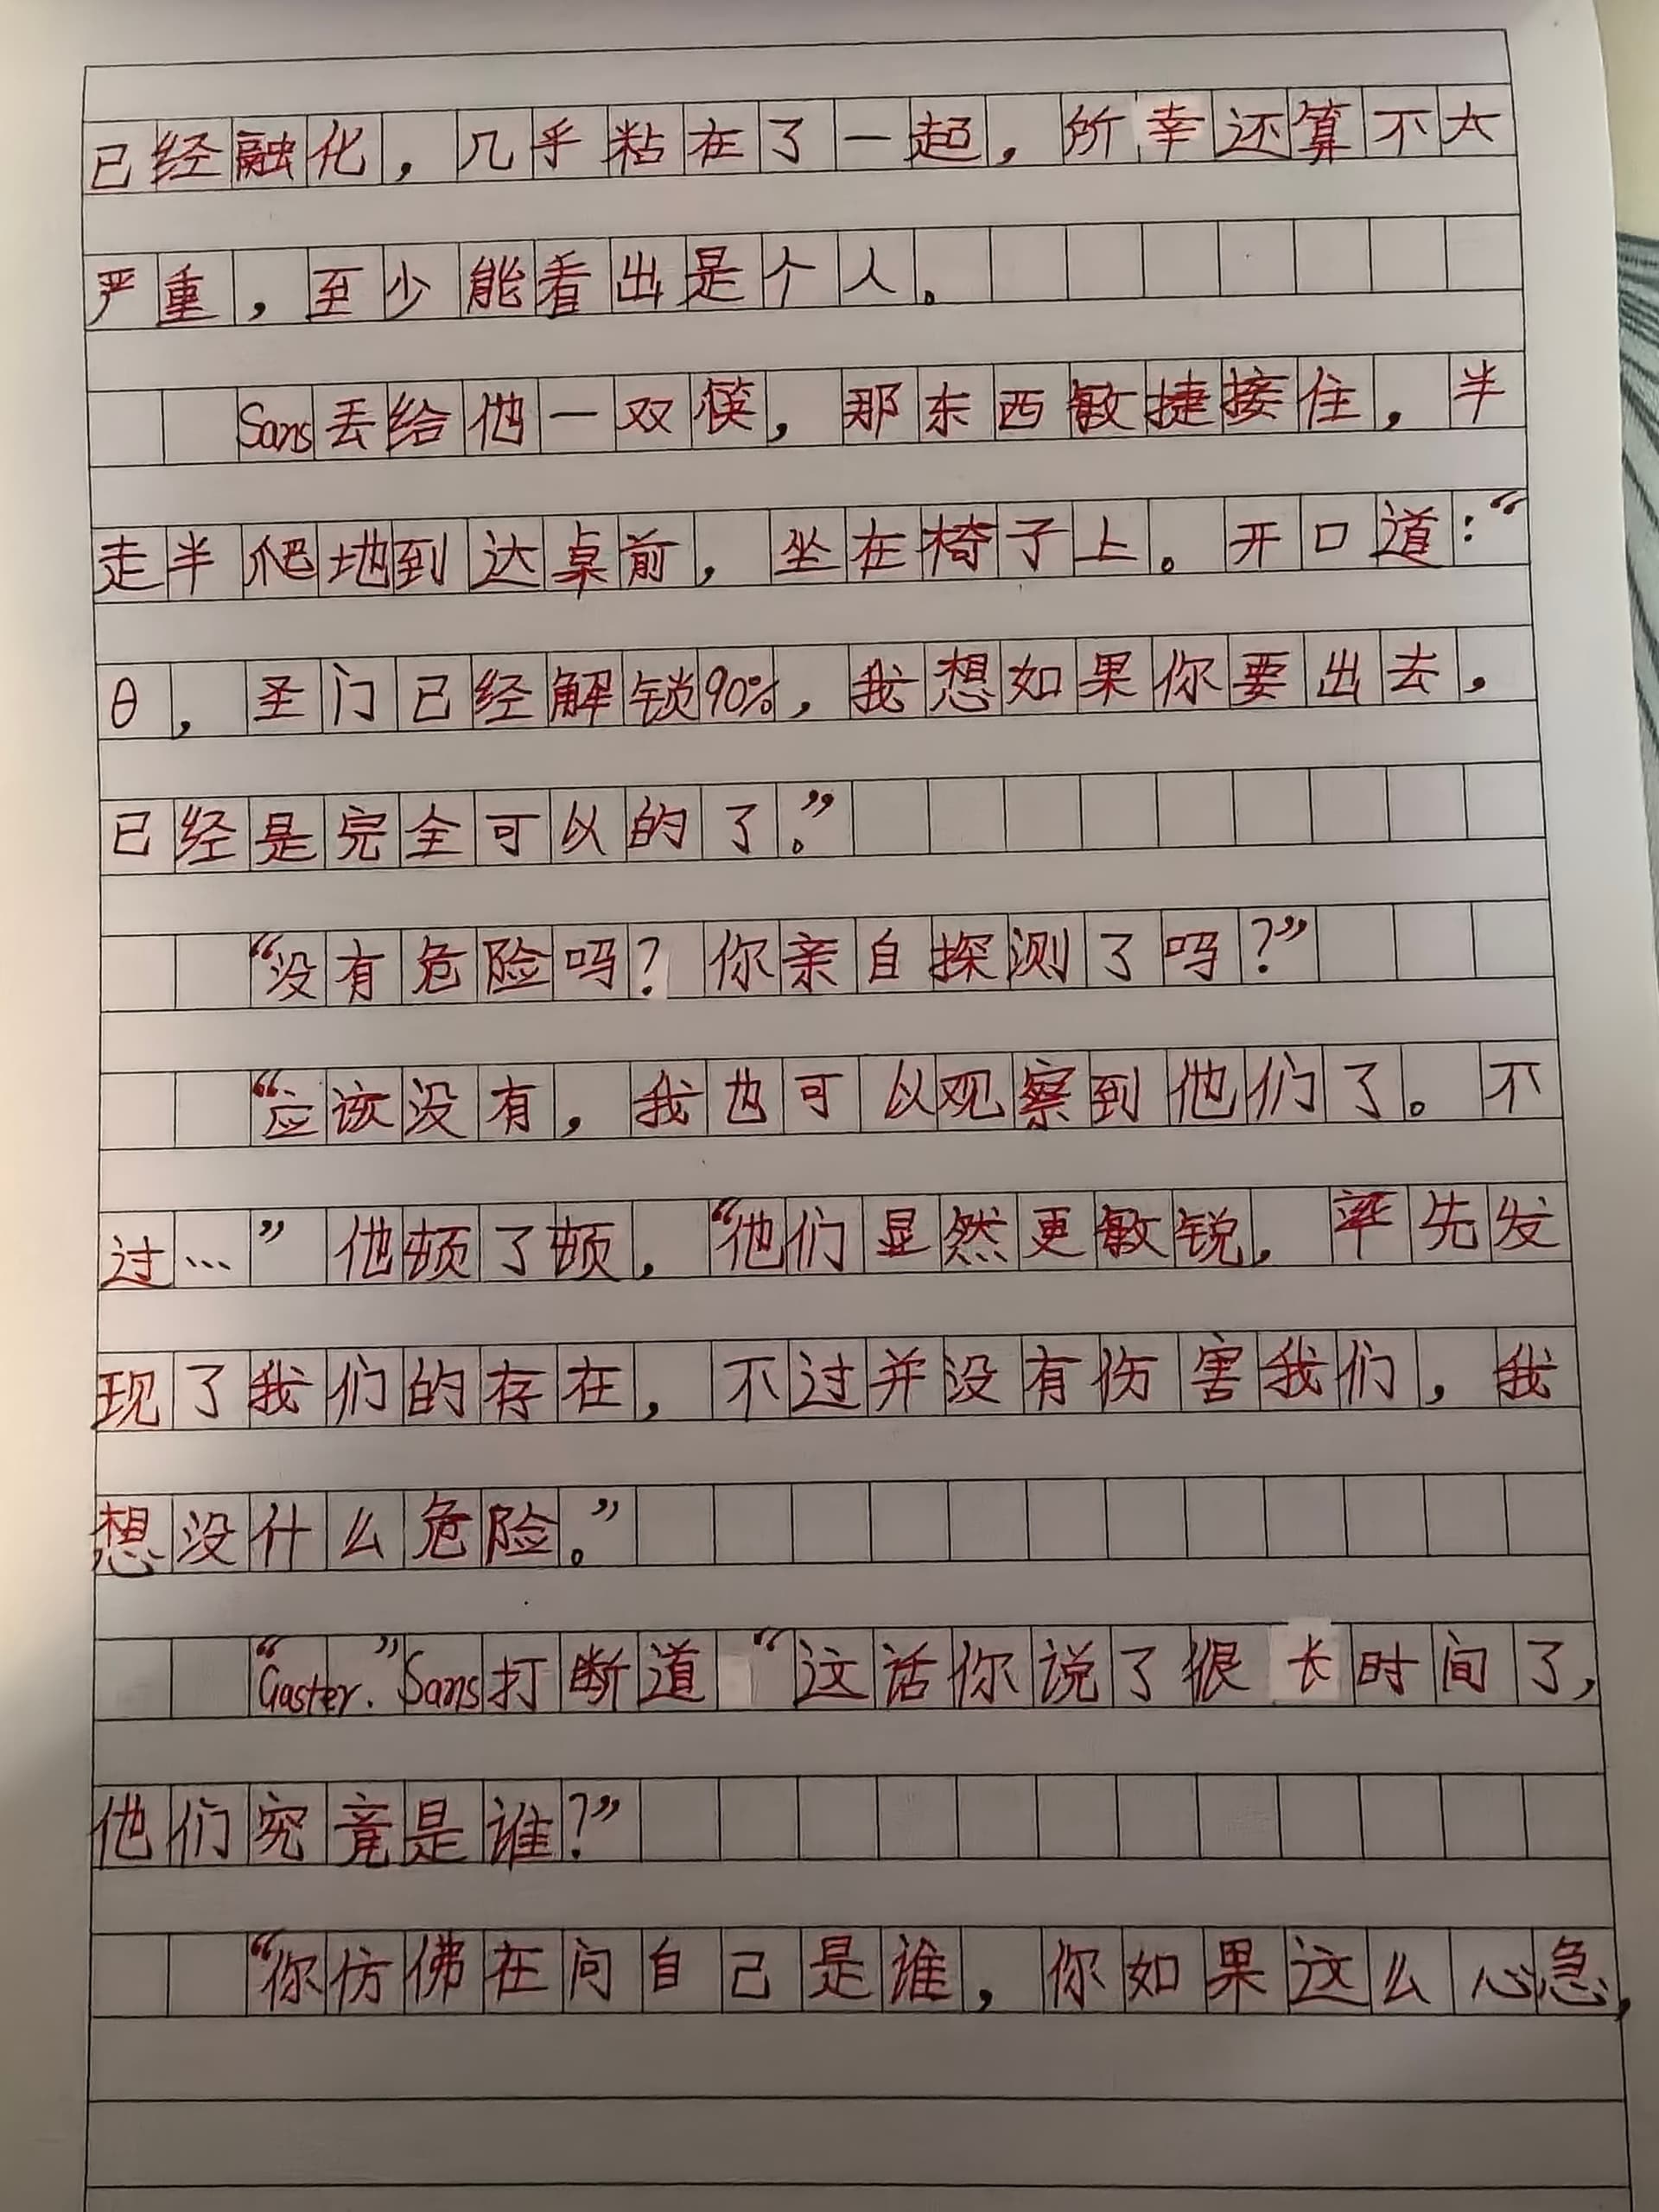 已经融化，几乎粘在了一起，所幸还算不太
严重，至少能看出是个人。
Sans丢给他一双筷，那东西敏捷接住，半
走半爬地到达桌前，坐在椅子上。开口道：“
θ，圣门已经解锁90%，我想如果你要出去，
已经是完全可以的了。”
“没有危险吗？你亲自探测了吗？”
“应该没有，我也可以观察到他们了。不
过…”他顿了顿，“他们显然更敏锐，率先发
现了我们的存在，不过并没有伤害我们，我
想没什么危险。”
“Gaster.”Sans打断道“这话你说了很长时间了，
他们究竟是谁？”
“你仿佛在问自己是谁，你如果这么心急，